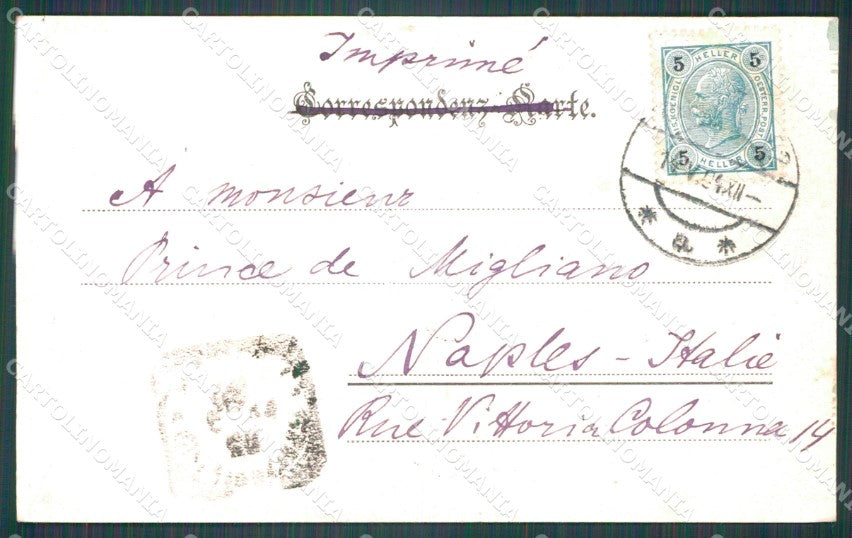 Imprimé
Correspondenz-Karte.
5 HELLER 5
5 HELLER 5
A monsieur
Prince de Migliano
Naples - Italie
Rue Vittoria Colonna 14
* a *
CARTOLINOMANIA